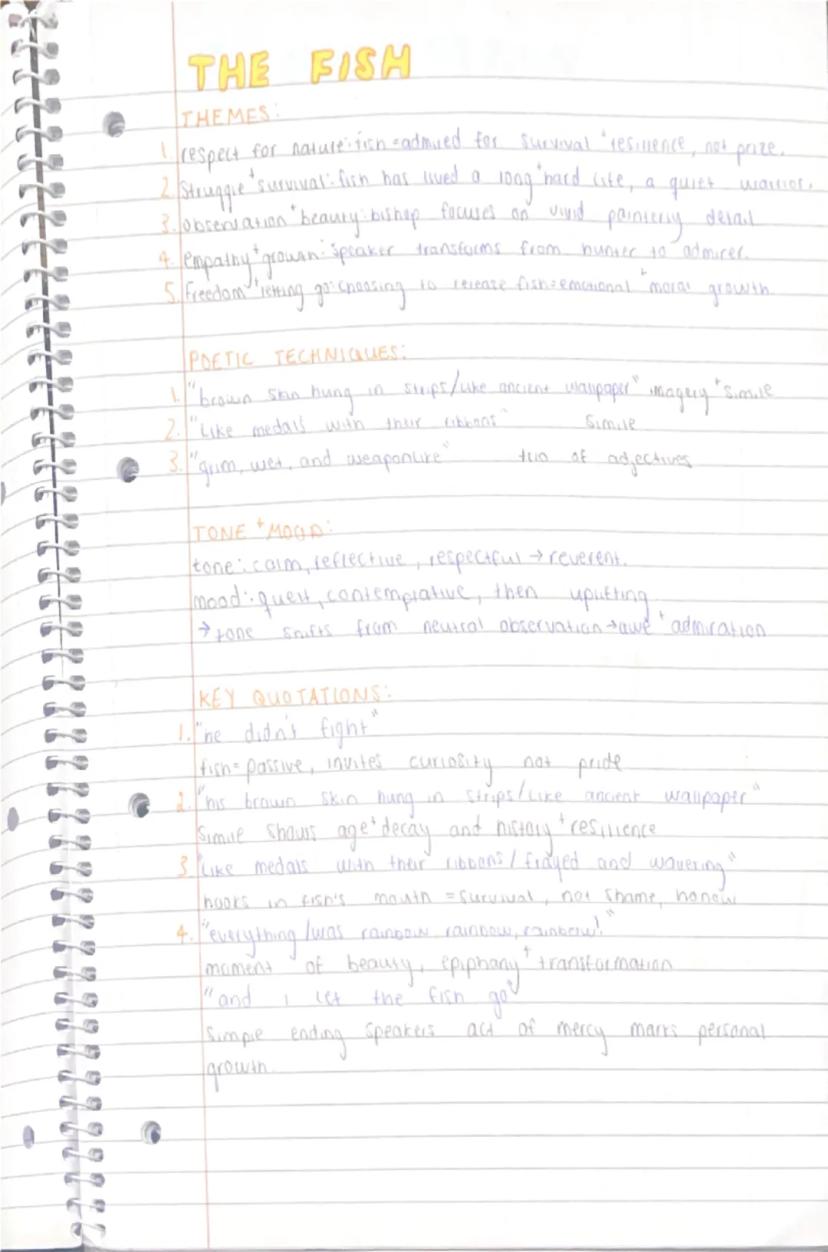 THE FISH
THEMES:
1. respect for nature: fish = admired for survival + resilience, not prize.
2. Struggle + survival: fish has lived a long + hard life, a quiet warrior.
3. observation + beauty: bishop focuses on vivid painterly detail
4. empathy + growth: speaker transforms from hunter to admirer.
5. freedom + letting go: choosing to release fish = emotional + moral growth
POETIC TECHNIQUES:
1. "brown skin hung in strips/like ancient wallpaper" imagery + simile
2. "like medals with their ribbons" simile
3. "grim, wet, and weaponlike" trio of adjectives
TONE + MOOD:
tone: calm, reflective, respectful → reverent.
mood: quiet, contemplative, then uplifting
→ tone shifts from neutral observation → awe + admiration
KEY QUOTATIONS:
1. "he didn't fight"
fish = passive, invites curiosity not pride
2. "his brown skin hung in strips/like ancient wallpaper"
simile shows age + decay and history + resilience
3 "like medals with their ribbons/frayed and wavering"
hooks in fish's mouth = survival, not shame, honour
4. "everything/was rainbow, rainbow, rainbow!"
moment of beauty, epiphany + transformation
"and i let the fish go"
simple ending speakers act of mercy marks personal
growth.